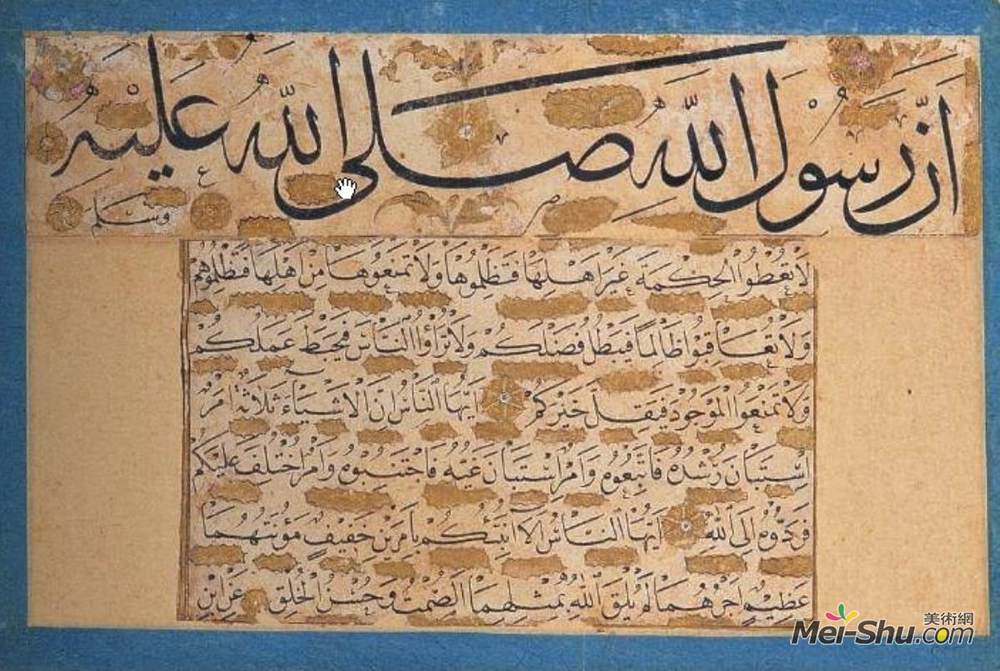 ان رسول الله صلى الله عليه
وسلم
لا تعطوا الحكمة غير اهلها فتظلموها ولا تمنعوها من اهلها فتظلموهم
ولا تعاقبوا ظالما فيبطل فضلكم ولا تراؤا الناس فيحبط عملكم
ولا تمنعوا الموجود فيقل خيركم ايها الناس ان الاشياء ثلاثة امر
استبان رشده فاتبعوه وامر استبان غيه فاجتنبوه وامر اختلف عليكم
فردوه الى الله ايها الناس الا انبئكم بامرين خفيف مؤنتهما
عظيم اجرهما لم يلق الله بمثلهما الصمت وحسن الخلق عن ابن
美術網
Mei-Shu.com